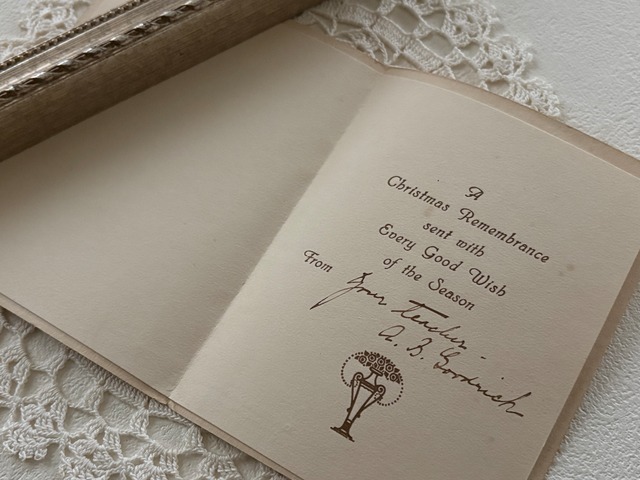 A
Christmas Remembrance
sent with
Every Good Wish
of the Season
From Your teacher -
A. B. Goodrich